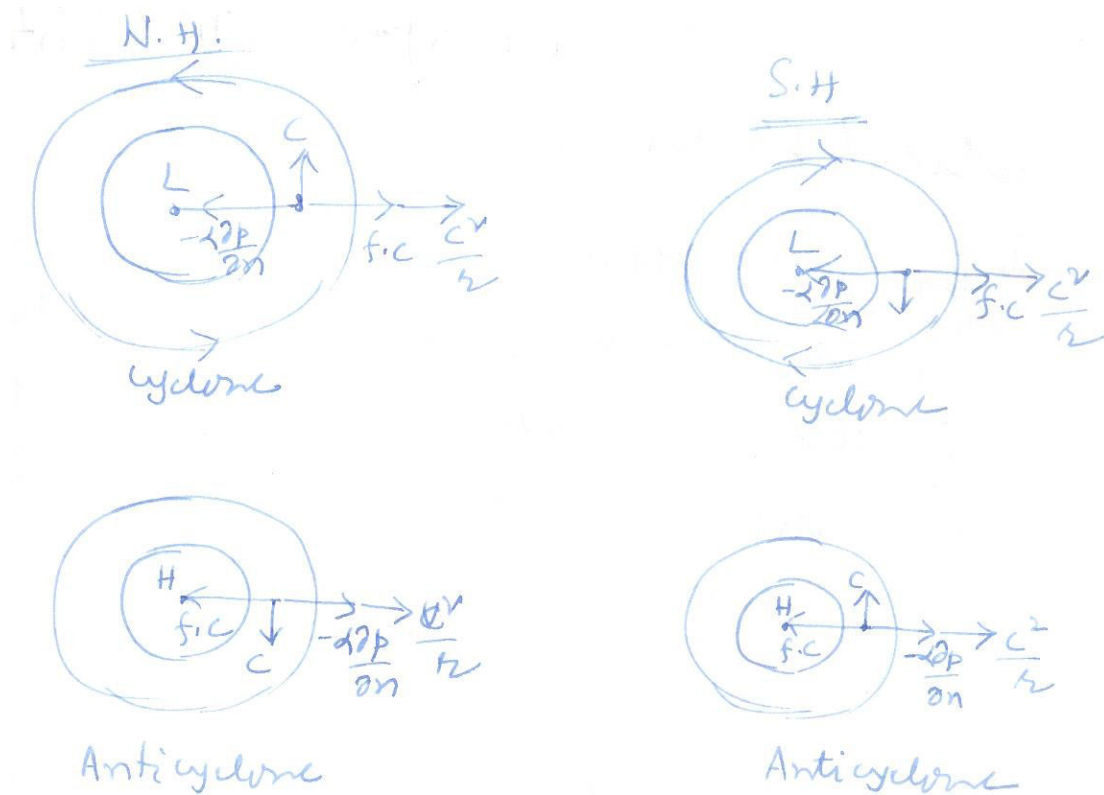 N.H.
C
L
-α∂p/∂n
f·c
c²/r
cyclone
S.H
L
-α∂p/∂n
f·c
c²/r
cyclone
H
f·c
C
-α∂p/∂n
c²/r
Anticyclone
C
H
f·c
-α∂p/∂n
c²/r
Anticyclone